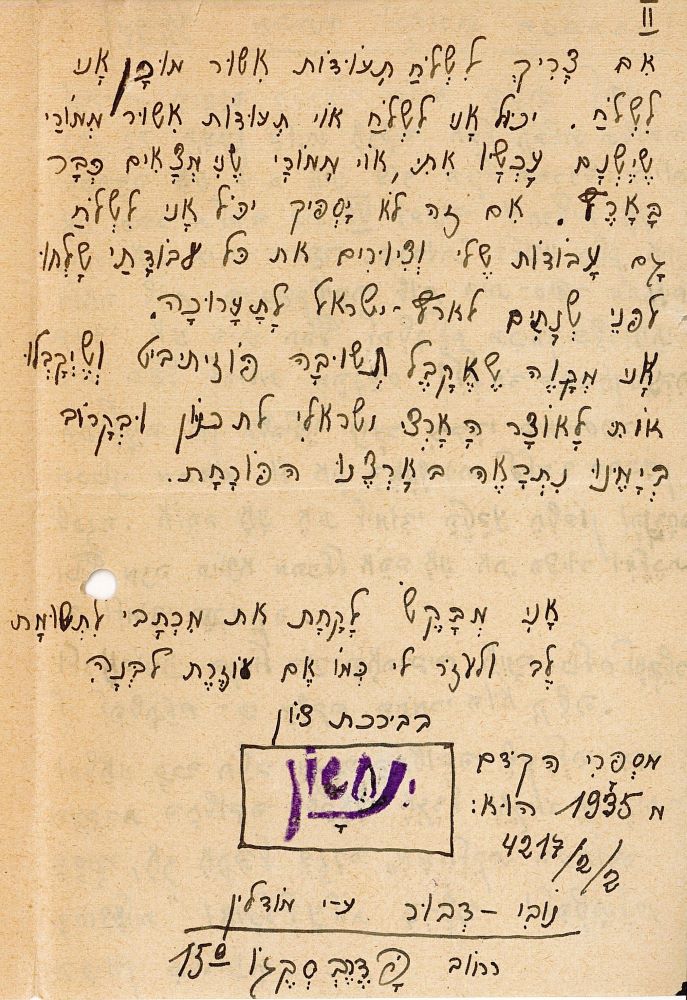 II
אִם צָרִיךְ לִשְׁלֹחַ תְעוּדוֹת אִשׁוּר מוּכָן אָנִי
לִשְׁלֹחַ. יכוֹל אָנִי לִשְׁלֹחַ אוֹי תְעוּדוֹת אִשׁוּר מִמוֹרַי
שֶׁיֶשְׁנָם עָכְשָׁו אִתִי, אוֹי מִמוֹרַי שֶׁנִמְצָאִים כְּבָר
בָּאָרֶץ. אִם זֶה לֹא יַסְפִּיק יכֹל אָנִי לִשְׁלֹחַ
גַם עָבוֹדוֹת שֶׁלִי וְצִיוּרִים אֶת כֹל עבוֹדָתַי שָׁלַחְתִי
לִפְנֵי שְׁנָתַיִם לארץ-ישראל לְתַעֲרוּכָה.
אָנִי מְקַוֶה שֶׁאֲקַבֶּל תְשׁוּבָה פּוֹזיתיביט וְשֶׁיְקַבְּלוּ
אוֹתִי לָאוֹצָר הָאַרְצִי ישראלי לתכנון וּבְקָרוֹב
בְּיָמֵינוּ נִתְרָאֶה בּאַרְצֵנוּ הפּוֹרַחַת.
אָנִי מְבַקֵשׁ לָקַחַת אֶת מִכְתָּבִי לִתְשׂוּמַת
לֵב ולעזֹר לִי כְּמוֹ אֵם עוֹזֶרֶת לִבְנָהּ
בבירכת ציון
נחשון
מִסְפָּרִי הקֹדֵם
מ 1935 הוּא:
4217/2/2
נוֹבִי-דְבוּר ע-י מוֹדלין
רחוֹב פֶדֶרֶבְסְקֶגוֹ 15ª